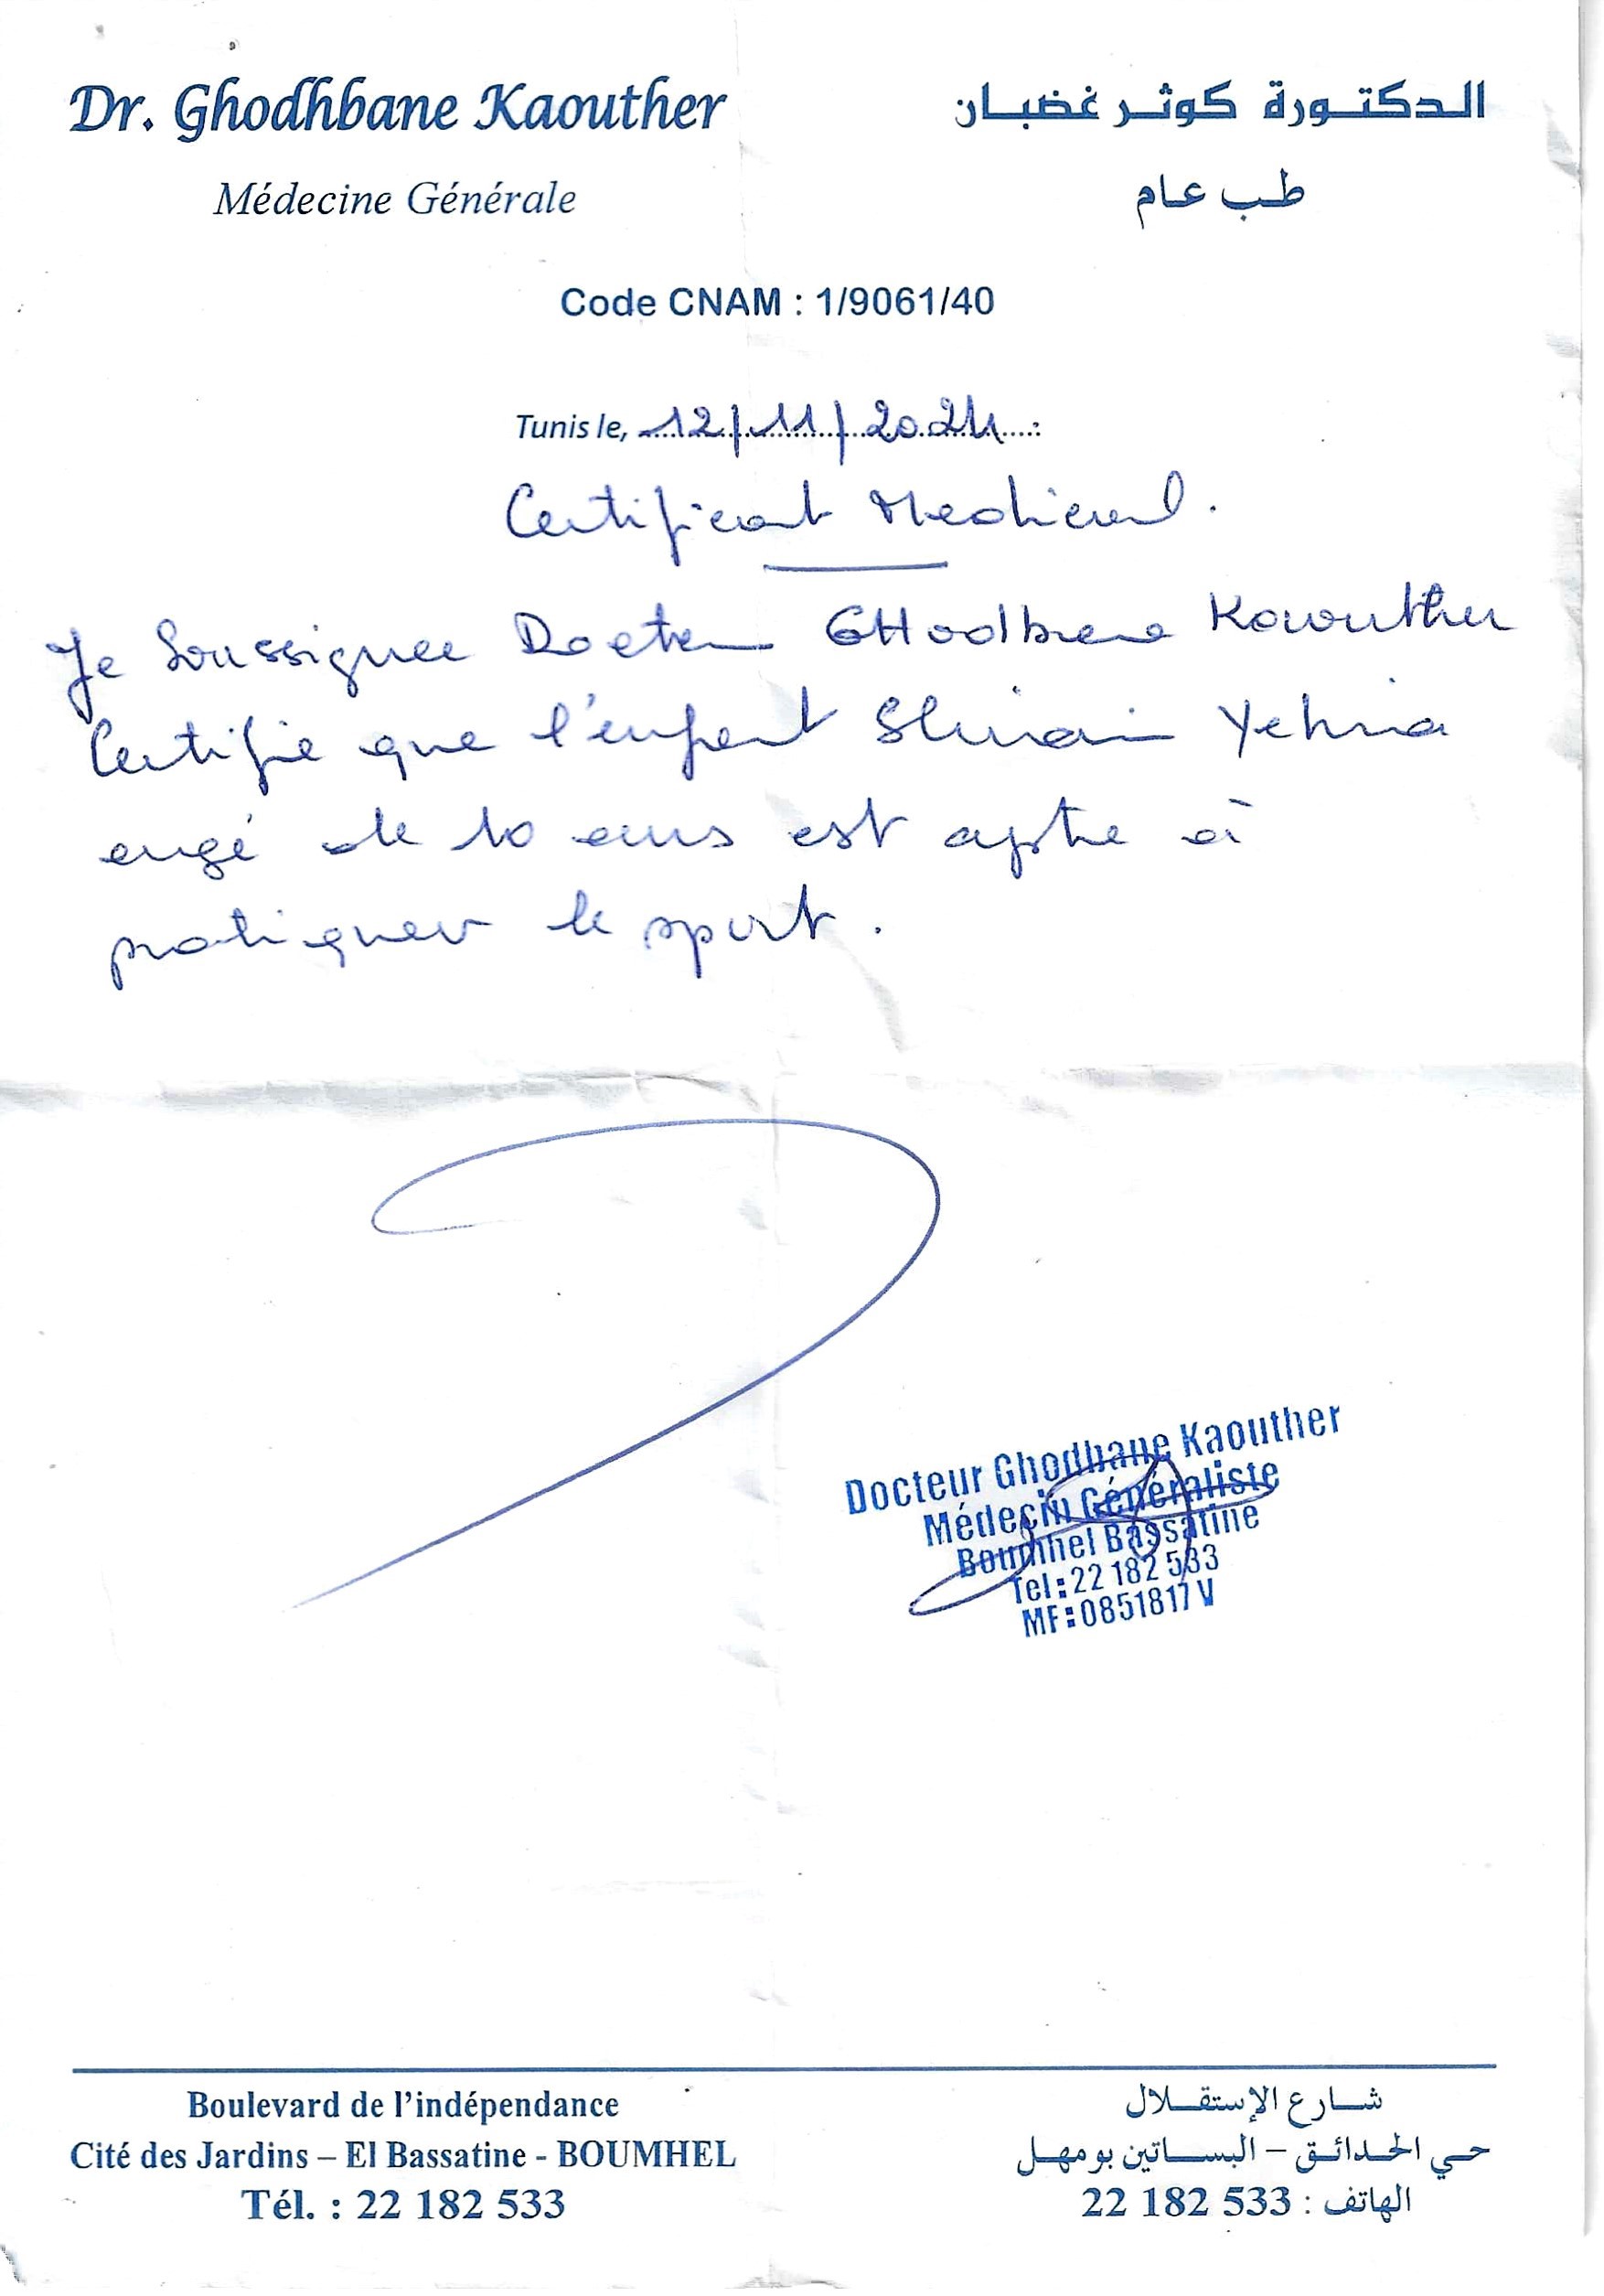 Dr. Ghodhbane Kaouther
الدكتورة كوثر غضبان
Médecine Générale
طب عام
Code CNAM : 1/9061/40
Tunis le, 12/11/2024
Certificat Medical.
Je Soussignee Docteur GHodbane Kaouther
Certifie que l'enfant Yehia
agé de 10 ans est apte à
pratiquer le sport.
Docteur Ghodbane Kaouther
Médecin Généraliste
Boumhel Bassatine
Tel:22 182 533
MF:0851817 V
Boulevard de l'indépendance
شارع الإستقلال
Cité des Jardins – El Bassatine - BOUMHEL
حي الحدائق – البساتين بومهل
Tél. : 22 182 533
الهاتف : 533 182 22